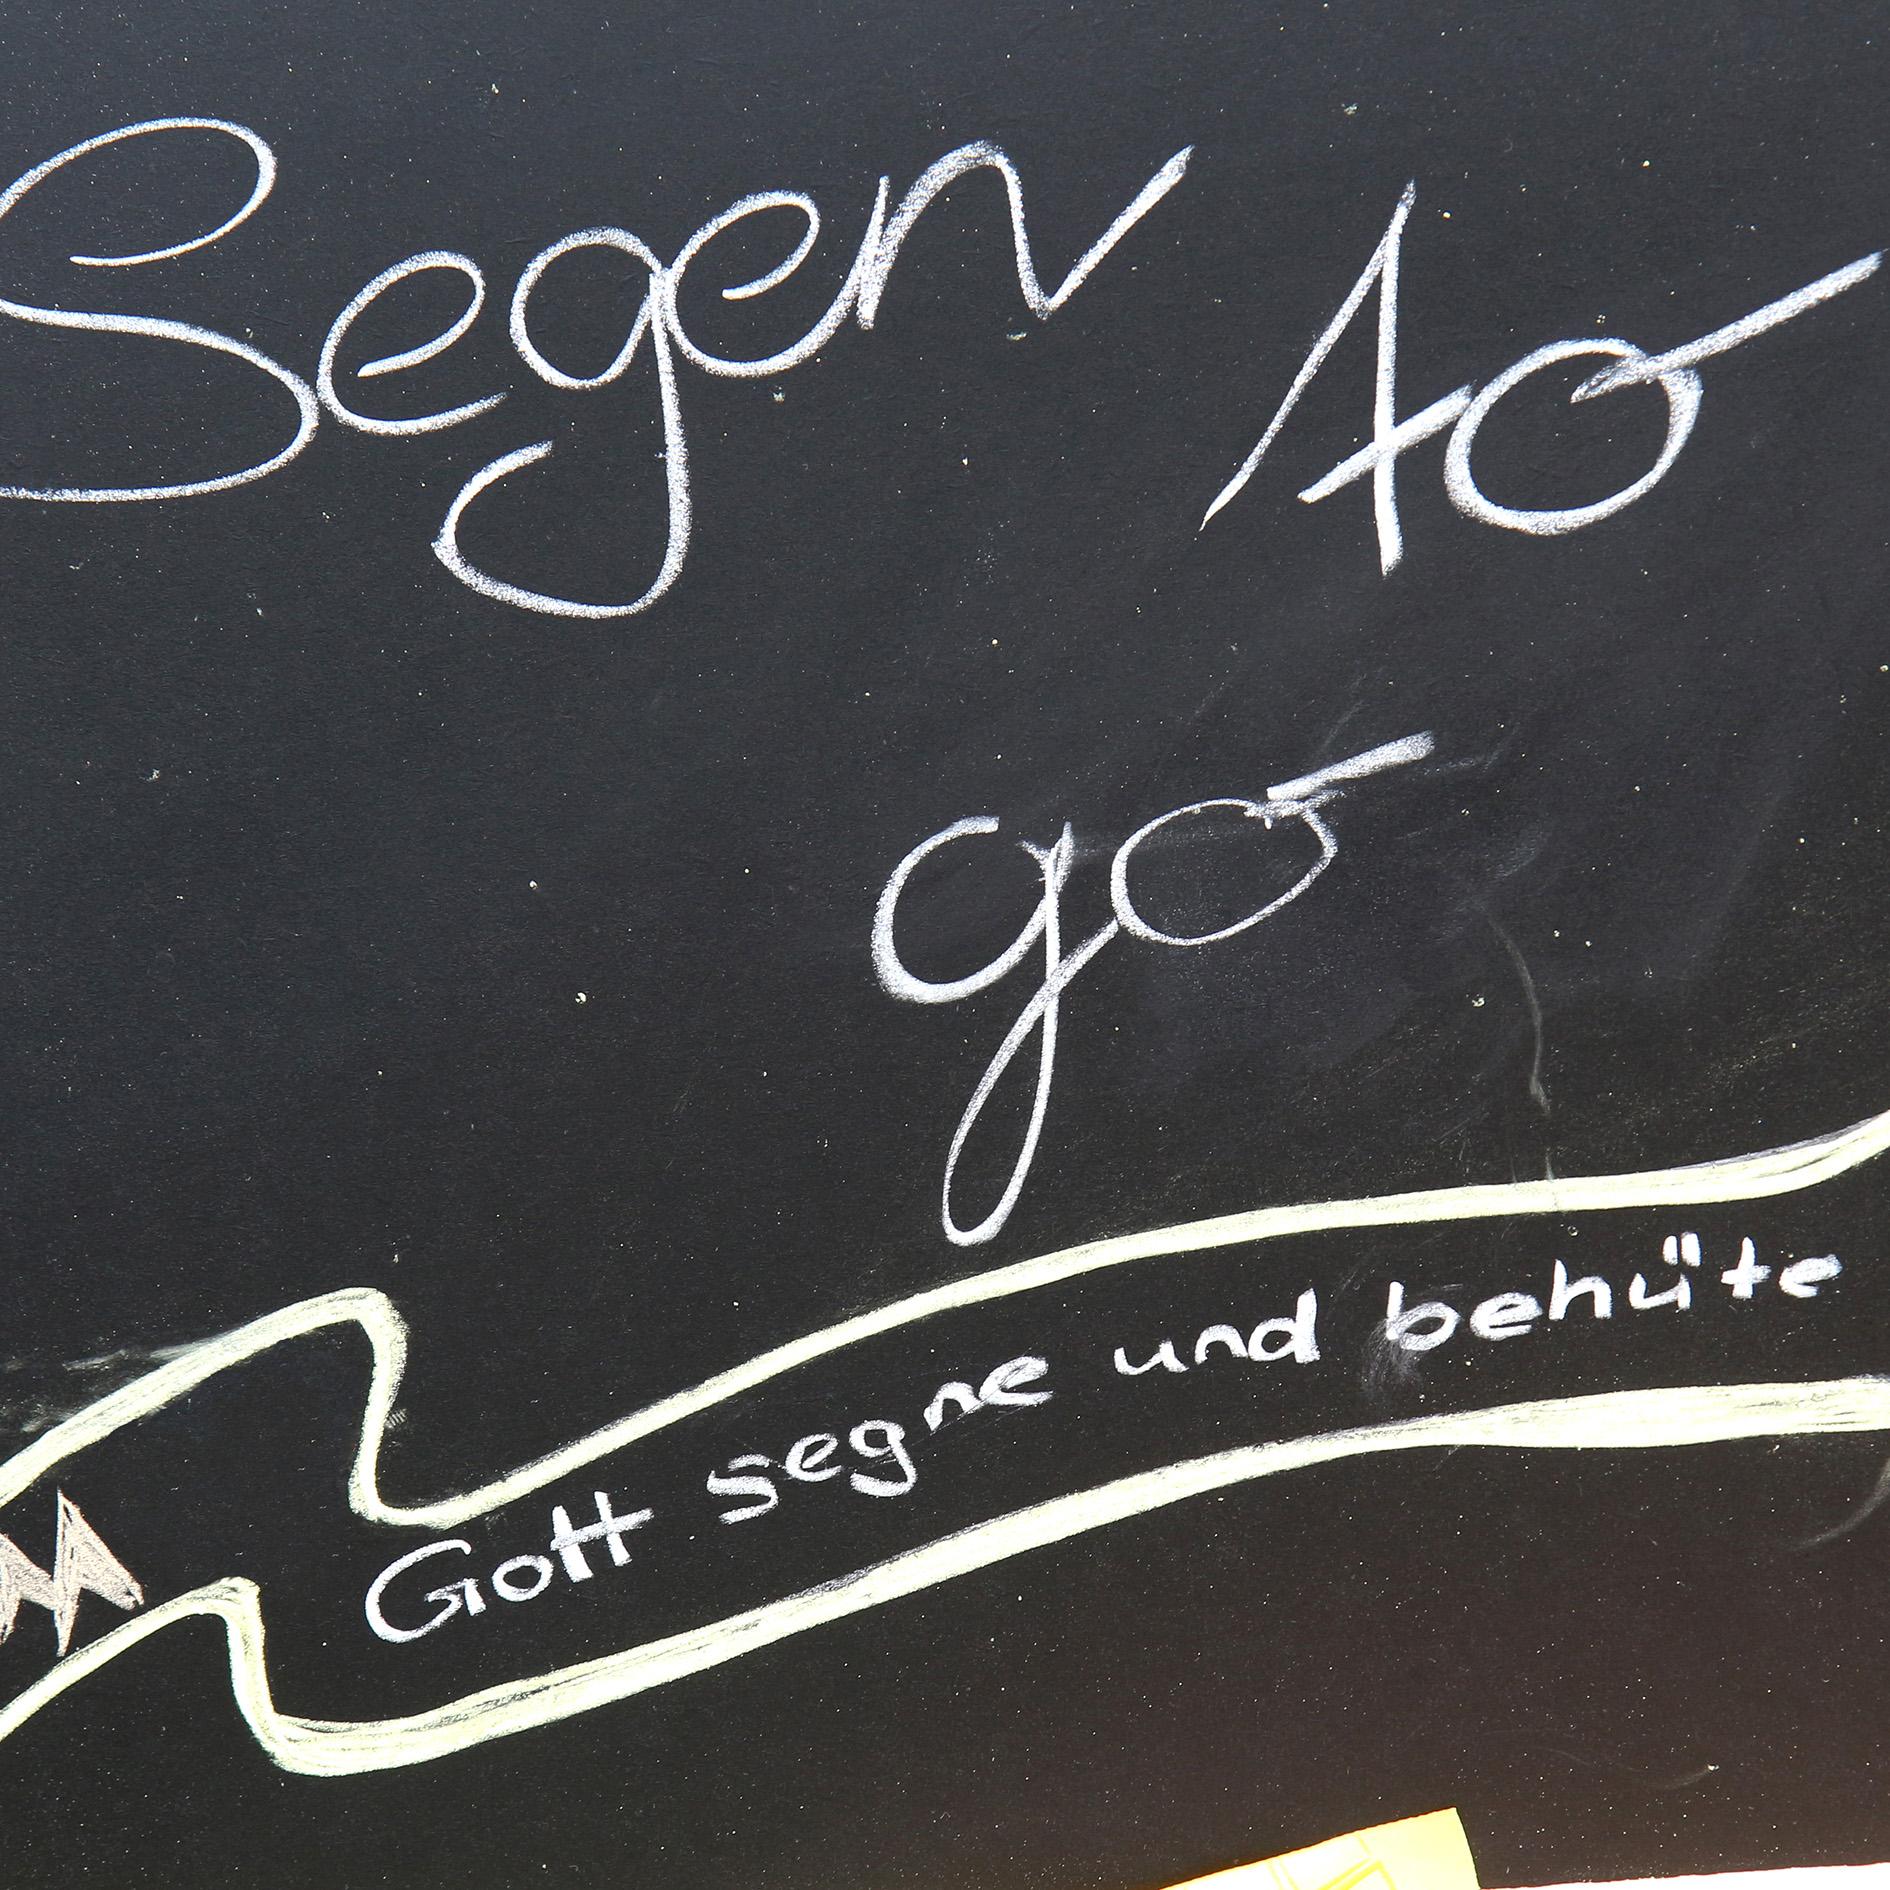 Segen to
go
Gott segne und behüte